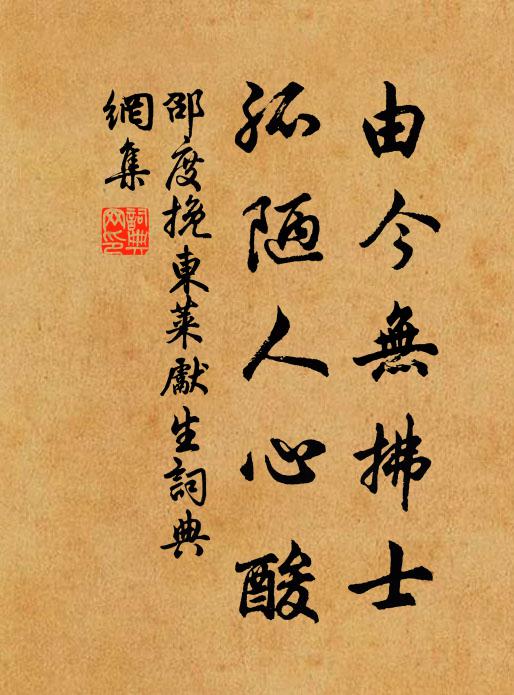 由今無拂士
孤陋人心酸
邵度挽東萊獻生詞典
網集
詞典網印